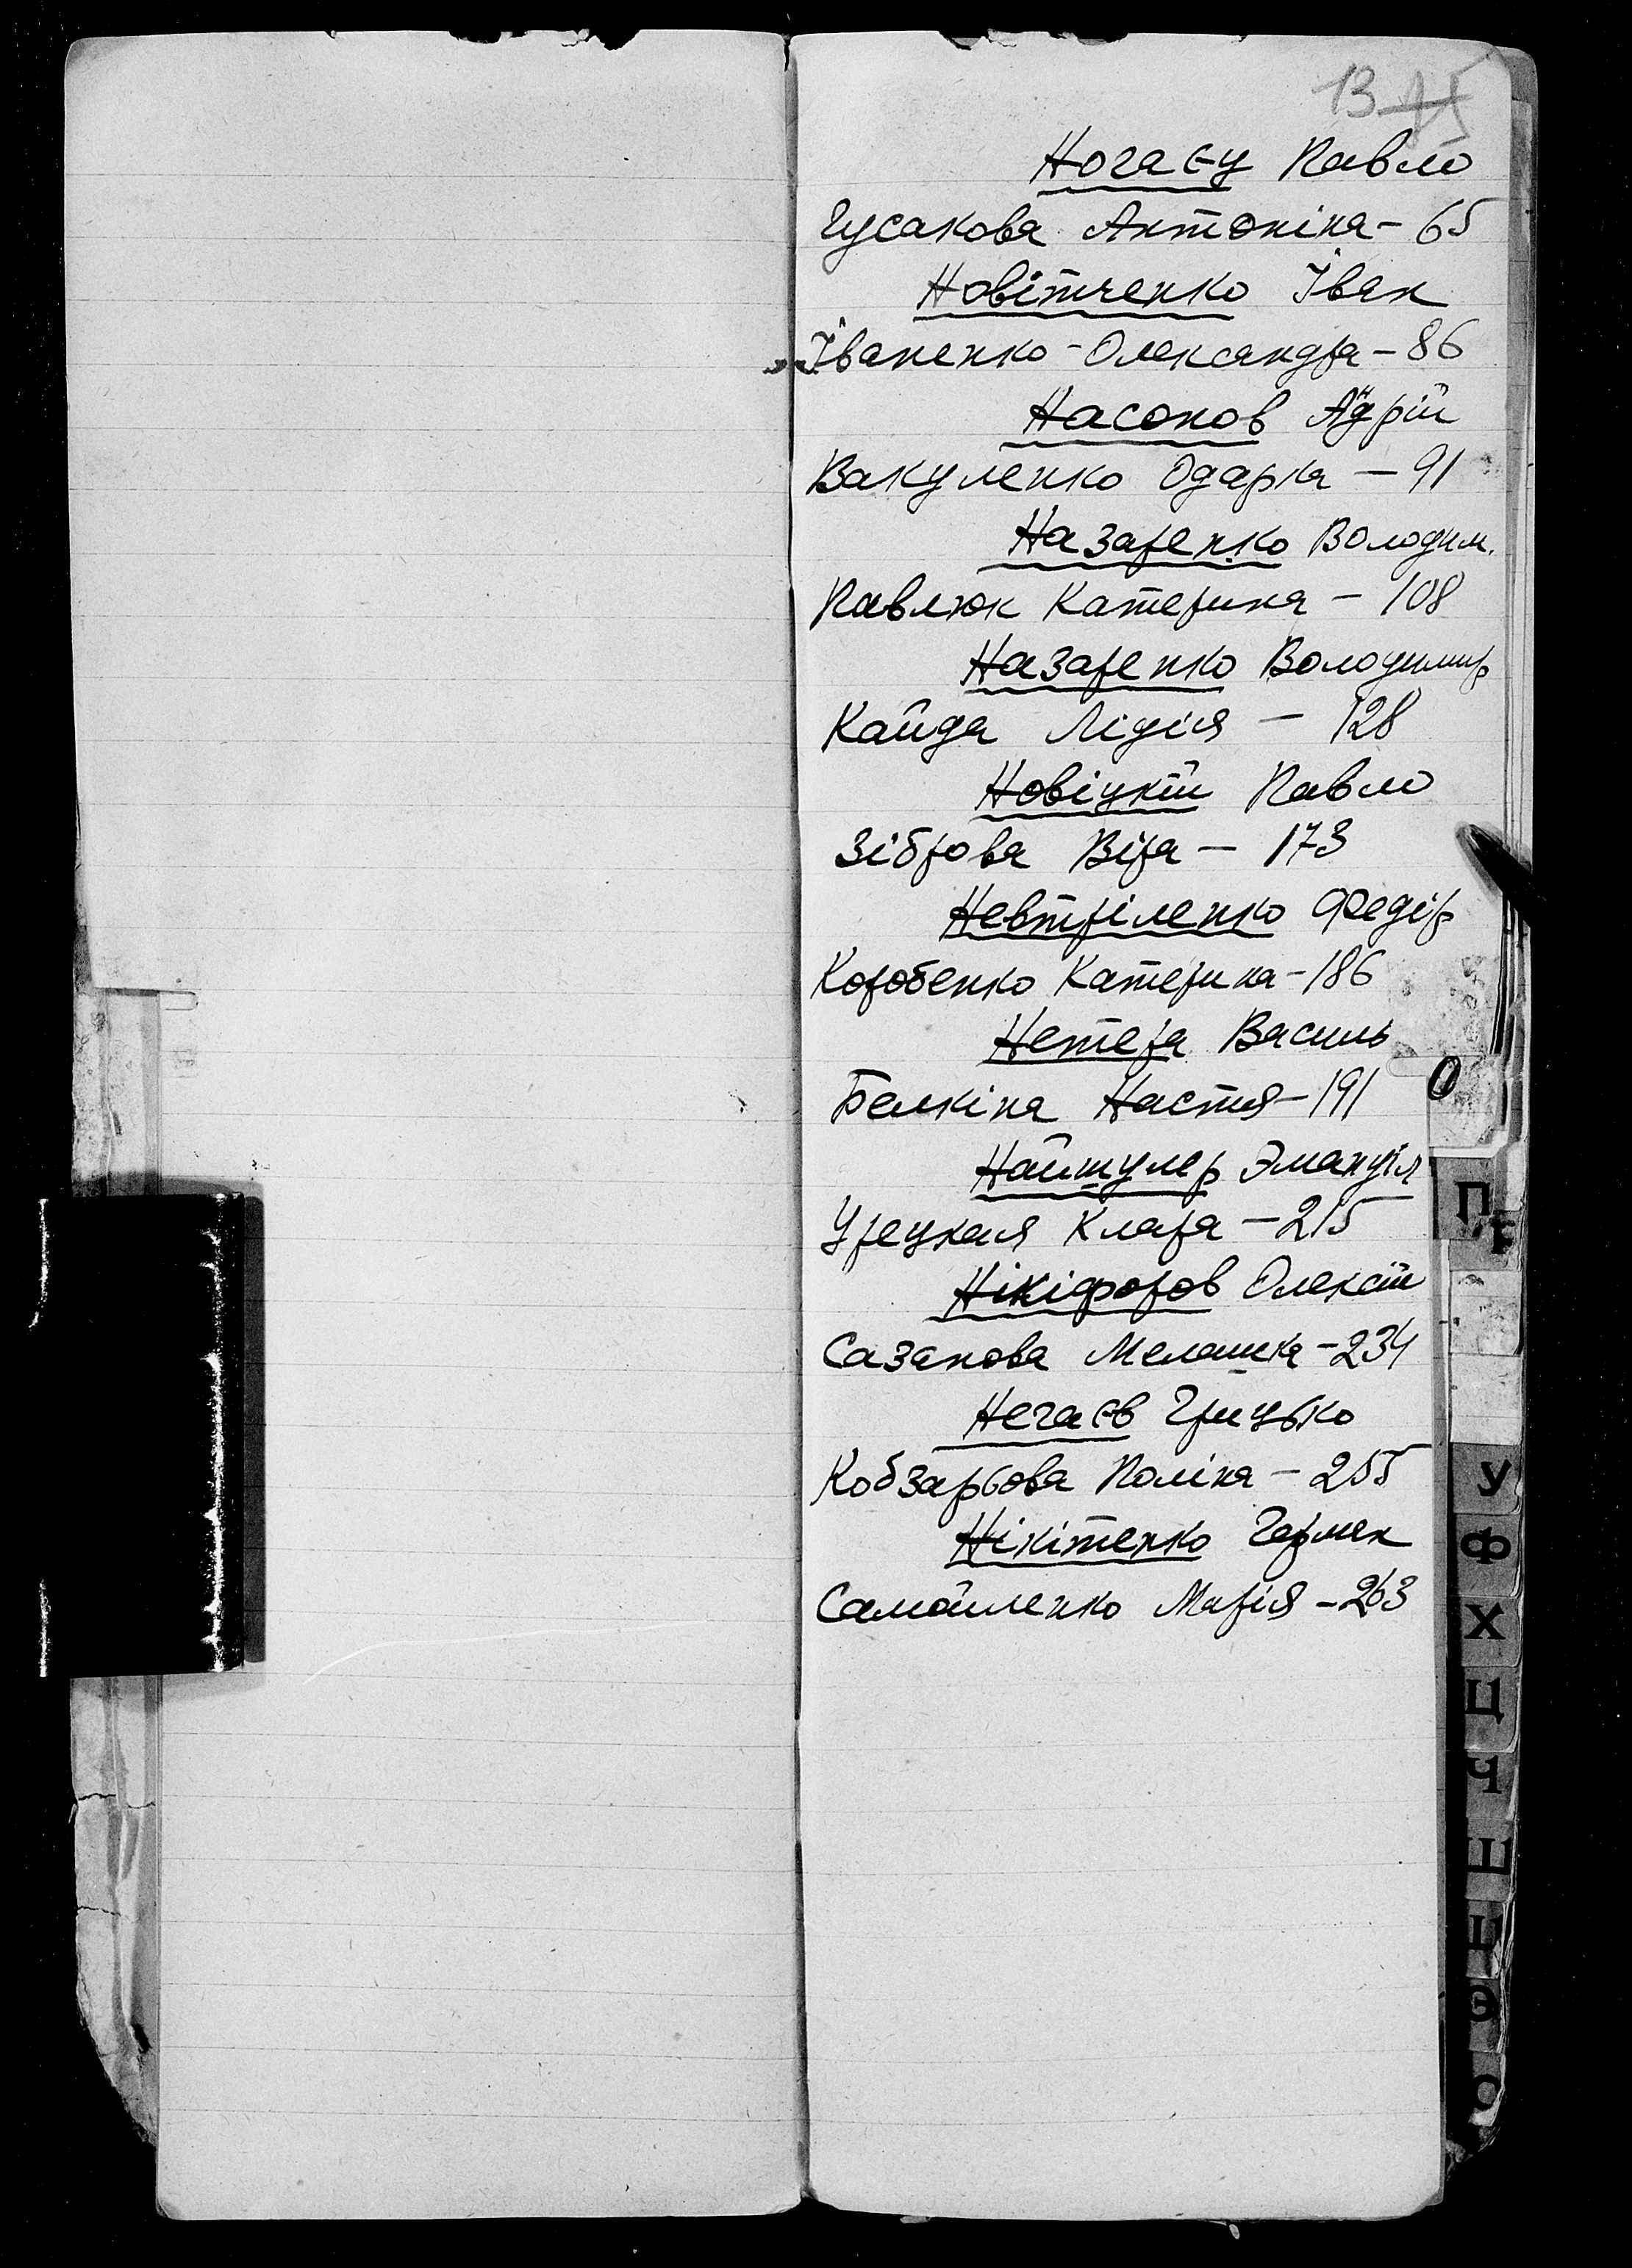 13 15
Ногаєу Павло
Гусакова Антоніна - 65
Новітченко Іван
Іваненко - Олександра - 86
Насонов Адрій
Вакуленко Одарка - 91
Назаренко Володим.
Павлюк Катерина - 108
Назаренко Володимир
Кайда Лідія - 128
Новіцкій Павло
Зіброва Віра - 173
Невтріленко Федір
Коробенко Катерина - 186
Нетеса Василь
Белкіна Настя - 191
Найшулер Эмануїл
Урецкая Клара - 215
Нікіфоров Олексій
Сазанова Мелашка - 234
Негаєв Грицько
Кобзарьова Поліна - 255
Нікітенко Герман
Самойленко Марія - 263
О
П
У
Ф
Х
Ц
Ч